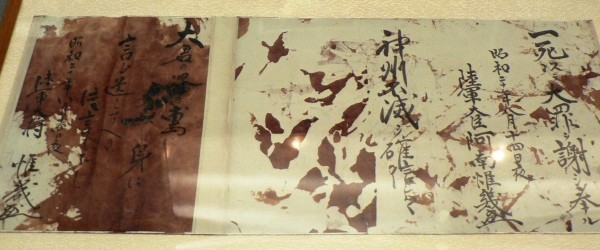 一死以テ大罪ヲ謝シ奉ル
昭和二十年八月十四日夜
陸軍大臣阿南惟幾
神州不滅ヲ確信シツヽ
大君の深き恵に
身は
言ひ遺こすへき
片言もなし
昭和二十年八月
陸軍大将 惟幾